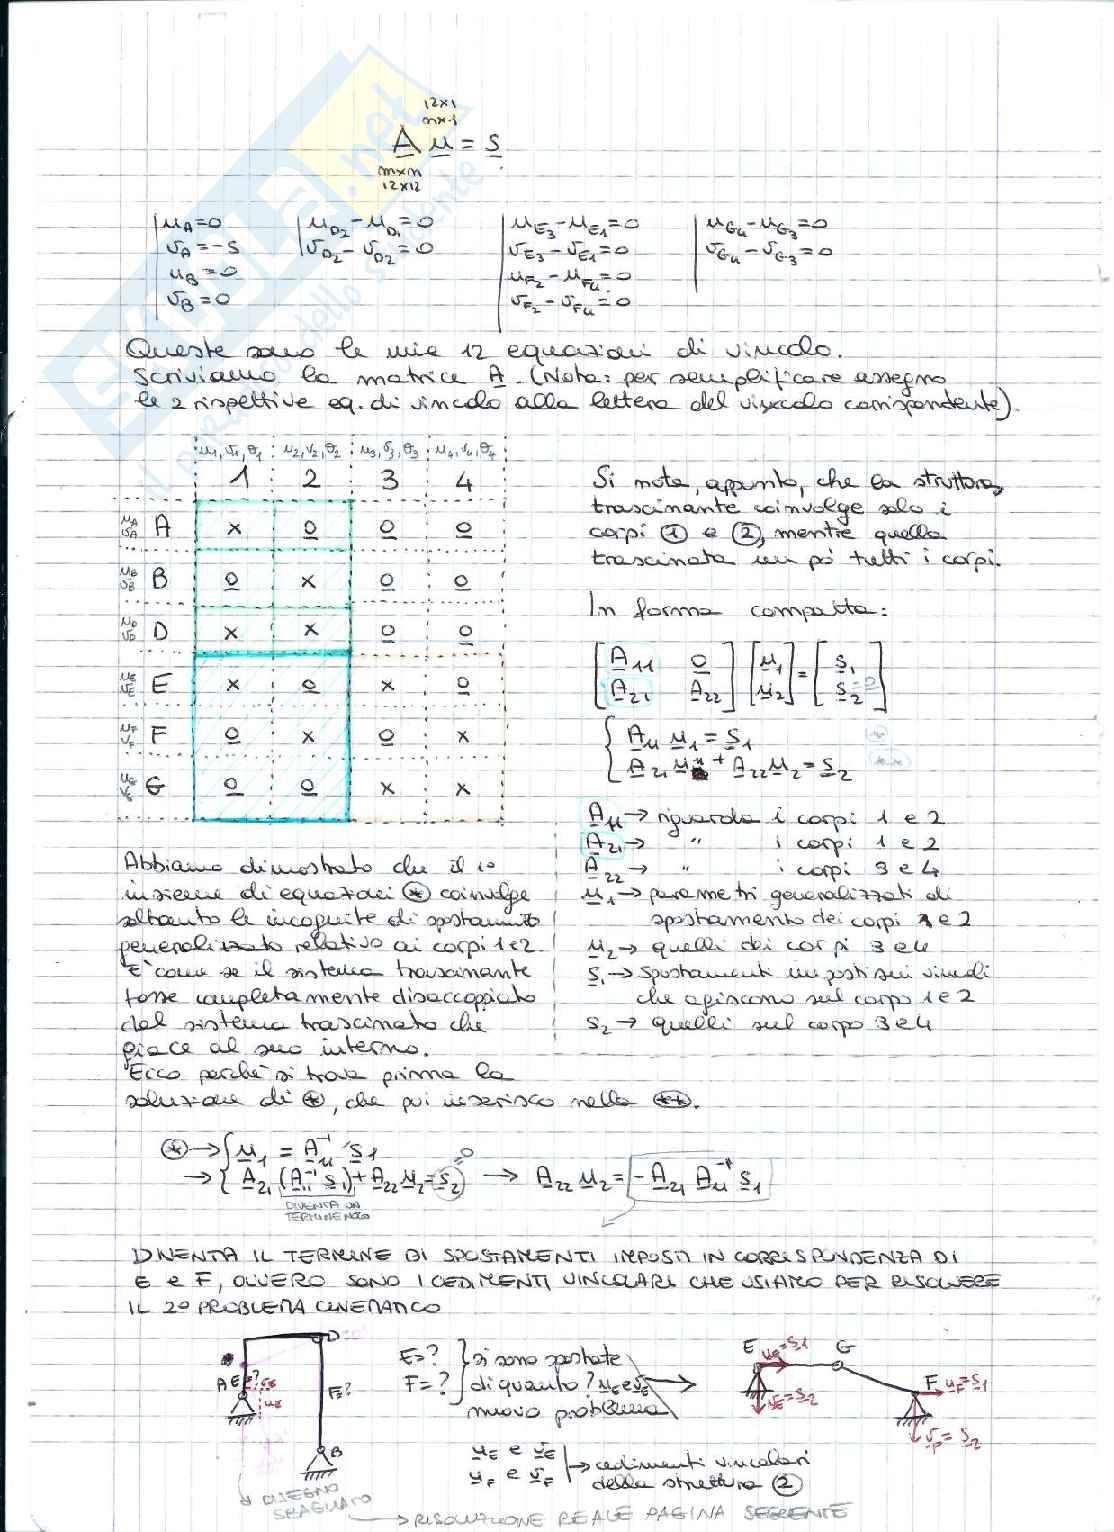 12x1
nx1
A u = s
mxn
12x12
uA=0 uD2-uD1=0 uE3-uE1=0 uG4-uG3=0
vA=-s vD2-vD2=0 vE3-vE1=0 vG4-vG3=0
uB=0 uF2-uF4=0
vB=0 vF2-vF4=0
Queste sono le mie 12 equazioni di vincolo.
Scriviamo la matrice A. (Nota: per semplificare assegno
le 2 rispettive eq. di vincolo alla lettera del vincolo corrispondente).
u1,v1,θ1 u2,v2,θ2 u3,v3,θ3 u4,v4,θ4
1 2 3 4
uA vA A x 0 0 0
uB vB B 0 x 0 0
uD vD D x x 0 0
uE vE E x 0 x 0
uF vF F 0 x 0 x
uG vG G 0 0 x x
Si nota, appunto, che la struttura
trascinante coinvolge solo i
corpi 1 e 2, mentre quella
trascinata un pò tutti i corpi.
In forma compatta:
[A11 0] [u1] = [s1]
[A21 A22] [u2] [s2] =0
A11 u1 = s1 *
A21 u1 + A22 u2 = s2 **
A11 → riguarda i corpi 1 e 2
A21 → " i corpi 1 e 2
A22 → " i corpi 3 e 4
u1 → parametri generalizzati di
spostamento dei corpi 1 e 2
u2 → quelli dei corpi 3 e 4
s1 → spostamenti imposti sui vincoli
che agiscono sul corpo 1 e 2
s2 → quelli sul corpo 3 e 4
Abbiamo dimostrato che il 1°
insieme di equazioni * coinvolge
soltanto le incognite di spostamento
generalizzato relativo ai corpi 1 e 2.
E' come se il sistema trascinante
fosse completamente disaccoppiato
dal sistema trascinato che
giace al suo interno.
Ecco perché si trova prima la
soluzione di *, che poi inserisco nella **.
* → { u1 = A11^-1 s1
→ { A21 (A11^-1 s1) + A22 u2 = s2 =0 → A22 u2 = -A21 A11^-1 s1
DIVENTA UN
TERMINE NOTO
DIVENTA IL TERMINE DI SPOSTAMENTI IMPOSTI IN CORRISPONDENZA DI
E e F, OVVERO SONO I CEDIMENTI VINCOLARI CHE USIAMO PER RISOLVERE
IL 2° PROBLEMA CINEMATICO
D
A E=? vE
uE
F=?
B
E=? si sono spostate
F=? di quanto? uE e vE
nuovo problema
uE e vE → cedimenti vincolari
uF e vF della struttura 2
E uE=s1 G
vE=s2
F uF=s1
vF=s2
DISEGNO
SBAGLIATO
→ RISOLUZIONE REALE PAGINA SEGUENTE